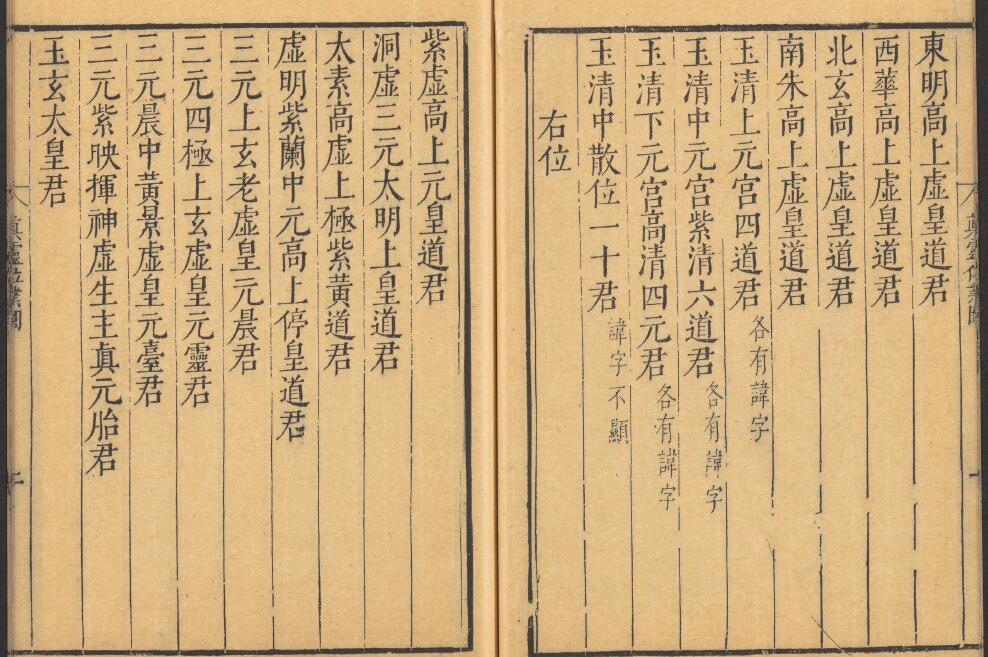 東明高上虛皇道君
西華高上虛皇道君
北玄高上虛皇道君
南朱高上虛皇道君
玉清上元宮四道君各有諱字
玉清中元宮紫清六道君各有諱字
玉清下元宮高清四元君各有諱字
玉清中散位一十君諱字不顯
右位
紫虛高上元皇道君
洞虛三元太明上皇道君
太素高虛上極紫黃道君
虛明紫蘭中元高上停皇道君
三元上玄老虛皇元晨君
三元四極上玄虛皇元靈君
三元晨中黃景虛皇元臺君
三元紫映揮神虛生主真元胎君
玉玄太皇君